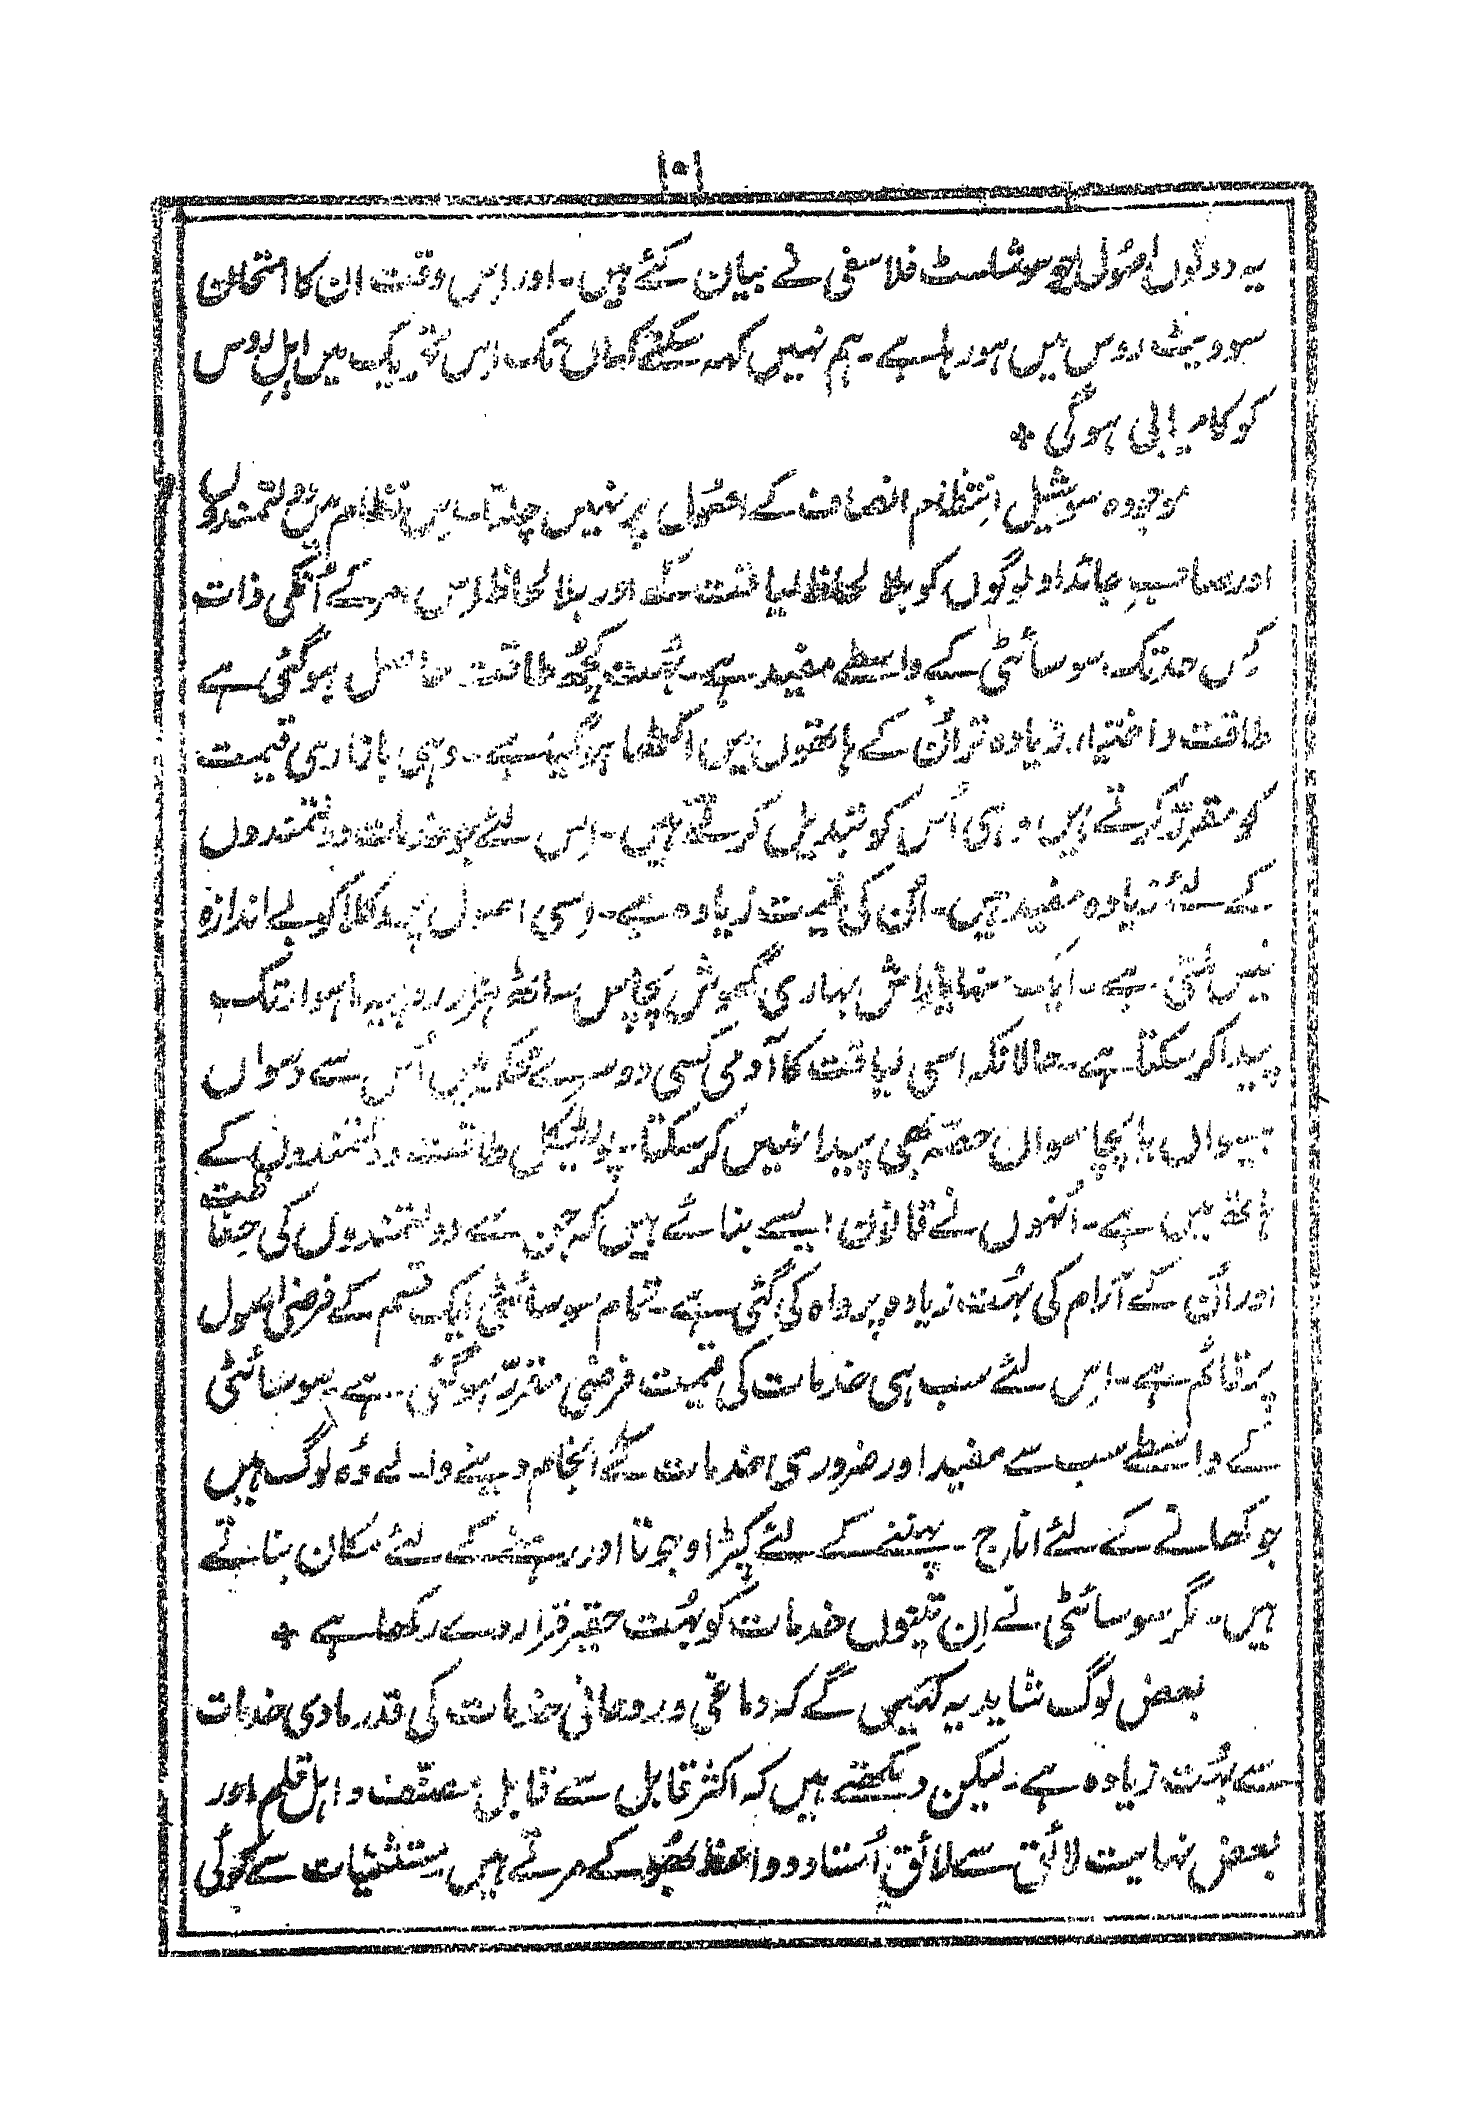 ۱۰۱
یہ دونوں اصول سوشلسٹ فلاسفی نے بیان کئے ہیں۔ اور اِس وقت ان کا امتحان
سوویٹ روس میں ہو رہا ہے۔ ہم نہیں کہہ سکتے کہاں تک اس تحریک میں اہلِ روس
کو کامیابی ہوگی +
موجودہ سوشیل اِنتظام انصاف کے اصُول پر نہیں چلتا۔ اس نظام میں دولتمندوں
اور صاحبِ جائداد لوگوں کو بلا لحاظ لیاقت کے اور بلا لحاظ اِس امر کے اُنکی ذات
کِس حد تک سوسائٹی کے واسطے مفید ہے۔ بہُت کچھ طاقت حاصل ہوگئی ہے
طاقت و اختیار زیادہ تر اُن کے ہاتھوں میں اکٹھا ہوگیا ہے۔ وہی بازاری قیمت
کو مقرّر کرتے ہیں وہی اُس کو تبدیل کرتے ہیں۔ اِس لئے جو خدمات دولتمندوں
کے لئے زیادہ مفید ہیں۔ اُن کی قیمت زیادہ ہے۔ اِسی اصول پر وکلا کو بے اندازہ
فیس ملتی ہے۔ ایک تنہا راش بہاری گھوش پچاس ساٹھ ہزار روپیہ ماہوار تک
پیدا کر سکتا ہے۔ حالانکہ اسی لیاقت کا آدمی کسی دوسرے محکمہ میں اُس سے دسواں
بیسواں یا پچاسواں حصّہ بھی پیدا نہیں کر سکتا۔ پولٹیکل طاقت دولتمندوں کے
ہاتھ میں ہے۔ اُنہوں نے قانون ایسے بنائے ہیں کہ جن سے دولتمندوں کی حِفاظت
اور اُن کے آرام کی بہُت زیادہ پرواہ کی گئی ہے۔ تمام سوسائٹی ایک قسم کے فرضی اصول
پر قائم ہے۔ اِس لئے سب ہی خدمات کی قیمت فرضی مقرّر ہوگئی ہے۔ سوسائٹی
کے واسطے سب سے مفید اور ضروری خدمات کے انجام دینے والے وُہ لوگ ہیں
جو کھانے کے لئے اناج۔ پہننے کے لئے کپڑا و جوتا اور رہنے کے لئے مکان بناتے
ہیں۔ مگر سوسائٹی نے اِن تینوں خدمات کو بہُت حقیر قرار دے رکھا ہے +
بعض لوگ شاید یہ کہیں گے کہ دماغی و روحانی خدمات کی قدر مادی خدمات
سے بہُت زیادہ ہے۔ لیکن دیکھتے ہیں کہ اکثر قابل سے قابل مصنّف و اہل قلم اور
بعض نہایت لائق سے لائق اُستاد و واعظ بھُوکے مرتے ہیں مستثنیات سے کوئی